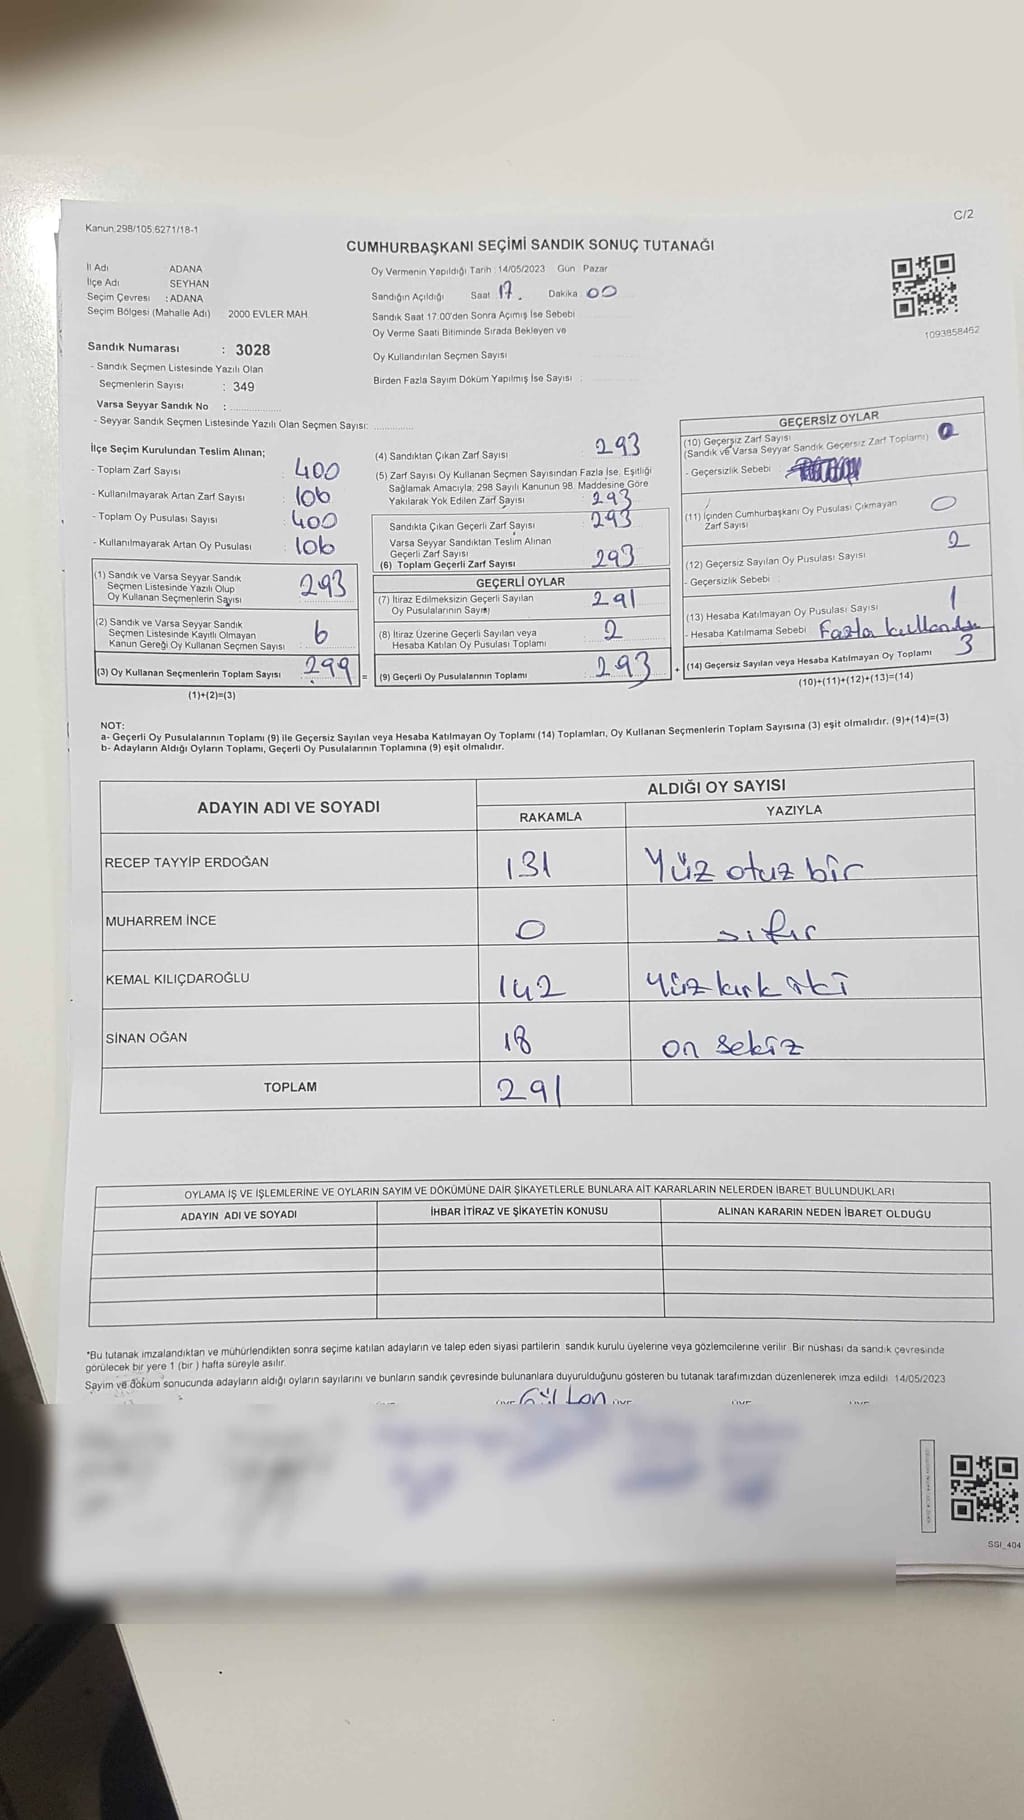 C/2
Kanun 298/105,6271/18-1
CUMHURBAŞKANI SEÇİMİ SANDIK SONUÇ TUTANAĞI
İl Adı ADANA
İlçe Adı SEYHAN
Seçim Çevresi : ADANA
Seçim Bölgesi (Mahalle Adı) 2000 EVLER MAH.
Oy Vermenin Yapıldığı Tarih : 14/05/2023 Gün : Pazar
Sandığın Açıldığı Saat 17. Dakika 00
Sandık Saat 17.00'den Sonra Açımış İse Sebebi
Oy Verme Saati Bitiminde Sırada Bekleyen ve
Oy Kullandırılan Seçmen Sayısı
Birden Fazla Sayım Döküm Yapılmış İse Sayısı :
1093858462
Sandık Numarası : 3028
- Sandık Seçmen Listesinde Yazılı Olan
Seçmenlerin Sayısı : 349
Varsa Seyyar Sandık No :
- Seyyar Sandık Seçmen Listesinde Yazılı Olan Seçmen Sayısı:
İlçe Seçim Kurulundan Teslim Alınan;
- Toplam Zarf Sayısı : 400
- Kullanılmayarak Artan Zarf Sayısı : 106
- Toplam Oy Pusulası Sayısı : 400
- Kullanılmayarak Artan Oy Pusulası : 106
(1) Sandık ve Varsa Seyyar Sandık
Seçmen Listesinde Yazılı Olup
Oy Kullanan Seçmenlerin Sayısı 293
(2) Sandık ve Varsa Seyyar Sandık
Seçmen Listesinde Kayıtlı Olmayan
Kanun Gereği Oy Kullanan Seçmen Sayısı : 6
(3) Oy Kullanan Seçmenlerin Toplam Sayısı 299 =
(1)+(2)=(3)
(4) Sandıktan Çıkan Zarf Sayısı : 293
(5) Zarf Sayısı Oy Kullanan Seçmen Sayısından Fazla İse, Eşitliği
Sağlamak Amacıyla; 298 Sayılı Kanunun 98. Maddesine Göre
Yakılarak Yok Edilen Zarf Sayısı : 293
Sandıkta Çıkan Geçerli Zarf Sayısı : 293
Varsa Seyyar Sandıktan Teslim Alınan
Geçerli Zarf Sayısı
(6) Toplam Geçerli Zarf Sayısı : 293
GEÇERLİ OYLAR
(7) İtiraz Edilmeksizin Geçerli Sayılan
Oy Pusulalarının Sayısı 291
(8) İtiraz Üzerine Geçerli Sayılan veya
Hesaba Katılan Oy Pusulası Toplamı 2
(9) Geçerli Oy Pusulalarının Toplamı 293 +
GEÇERSİZ OYLAR
(10) Geçersiz Zarf Sayısı
(Sandık ve Varsa Seyyar Sandık Geçersiz Zarf Toplamı)
- Geçersizlik Sebebi :
(11) İçinden Cumhurbaşkanı Oy Pusulası Çıkmayan
Zarf Sayısı 0
(12) Geçersiz Sayılan Oy Pusulası Sayısı 2
- Geçersizlik Sebebi :
(13) Hesaba Katılmayan Oy Pusulası Sayısı 1
- Hesaba Katılmama Sebebi : Fazla kullandı
(14) Geçersiz Sayılan veya Hesaba Katılmayan Oy Toplamı 3
(10)+(11)+(12)+(13)=(14)
NOT:
a- Geçerli Oy Pusulalarının Toplamı (9) ile Geçersiz Sayılan veya Hesaba Katılmayan Oy Toplamı (14) Toplamları, Oy Kullanan Seçmenlerin Toplam Sayısına (3) eşit olmalıdır. (9)+(14)=(3)
b- Adayların Aldığı Oyların Toplamı, Geçerli Oy Pusulalarının Toplamına (9) eşit olmalıdır.
ADAYIN ADI VE SOYADI ALDIĞI OY SAYISI
RAKAMLA YAZIYLA
RECEP TAYYİP ERDOĞAN 131 Yüz otuz bir
MUHARREM İNCE 0 sıfır
KEMAL KILIÇDAROĞLU 142 Yüz kırk iki
SİNAN OĞAN 18 on sekiz
TOPLAM 291
OYLAMA İŞ VE İŞLEMLERİNE VE OYLARIN SAYIM VE DÖKÜMÜNE DAİR ŞİKAYETLERLE BUNLARA AİT KARARLARIN NELERDEN İBARET BULUNDUKLARI
ADAYIN ADI VE SOYADI İHBAR İTİRAZ VE ŞİKAYETİN KONUSU ALINAN KARARIN NEDEN İBARET OLDUĞU
*Bu tutanak imzalandıktan ve mühürlendikten sonra seçime katılan adayların ve talep eden siyasi partilerin sandık kurulu üyelerine veya gözlemcilerine verilir. Bir nüshası da sandık çevresinde
görülecek bir yere 1 (bir ) hafta süreyle asılır.
Sayım ve döküm sonucunda adayların aldığı oyların sayılarını ve bunların sandık çevresinde bulunanlara duyurulduğunu gösteren bu tutanak tarafımızdan düzenlenerek imza edildi. 14/05/2023
SSI_404